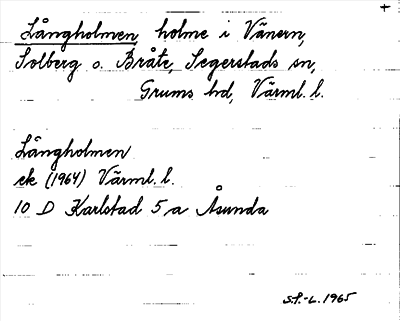 +
Långholmen, holme i Vänern,
Solberg o. Bråte, Segerstads sn,
Grums hd, Värml. l.
Långholmen
ek (1964) Värml. l.
10 D Karlstad 5 a Åsunda
S.P.-L. 1965